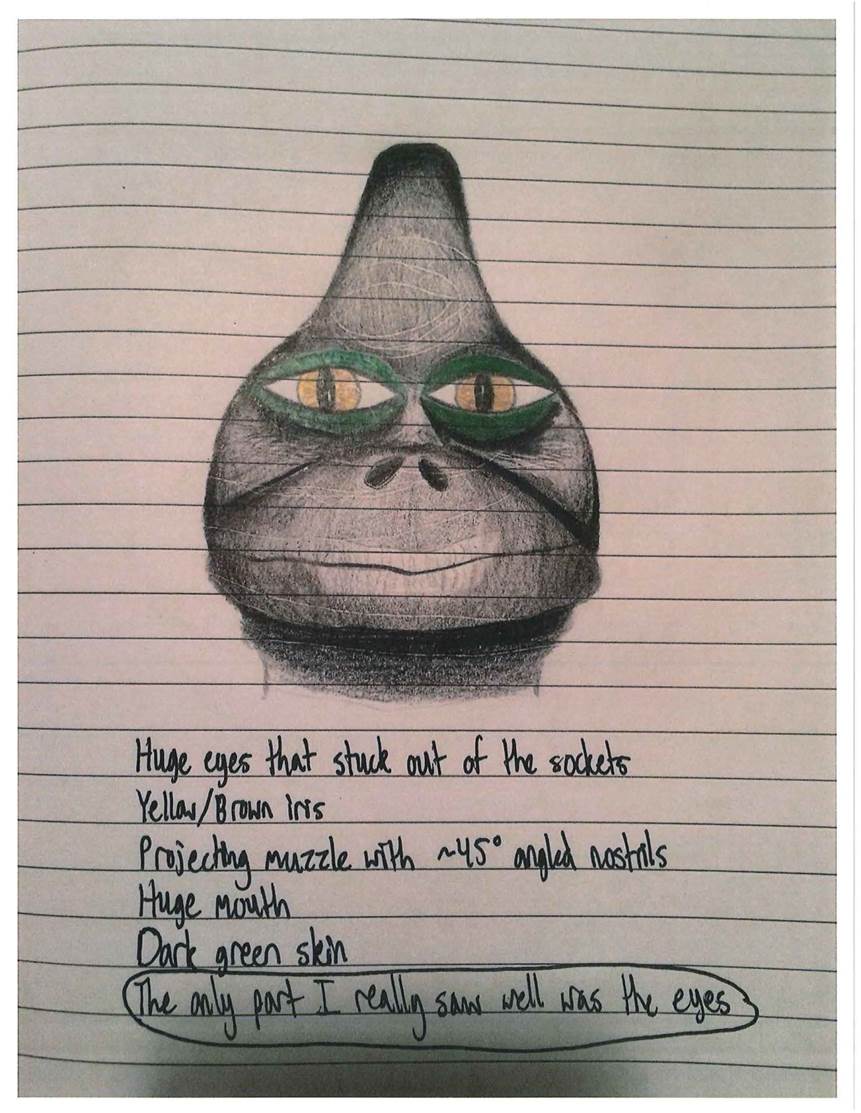 Huge eyes that stuck out of the sockets
Yellow/Brown iris
Projecting muzzle with ~45° angled nostrils
Huge mouth
Dark green skin
The only part I really saw well was the eyes